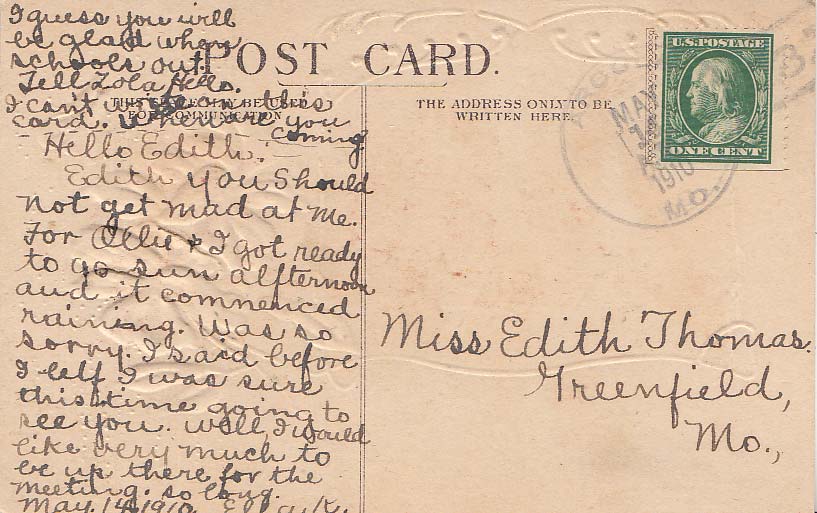 I guess you will
be glad when
schools out.
Tell Zola Hello.
I can't write on this
card. When are you
coming
POST CARD.
THIS SPACE MAY BE USED
FOR COMMUNICATION
THE ADDRESS ONLY TO BE
WRITTEN HERE.
Hello Edith.
Edith you should
not get mad at me.
For Ollie & I got ready
to go sun alfternoon
and it commenced
raining. Was so
sorry. I said before
I left I was sure
this time going to
see you. Well, I would
like very much to
be up there for the
meeting. so long.
May. 14, 1910. Ella. K.
U.S. POSTAGE
ONE CENT
MAY
1910
MO.
Miss Edith Thomas.
Greenfield,
Mo.,